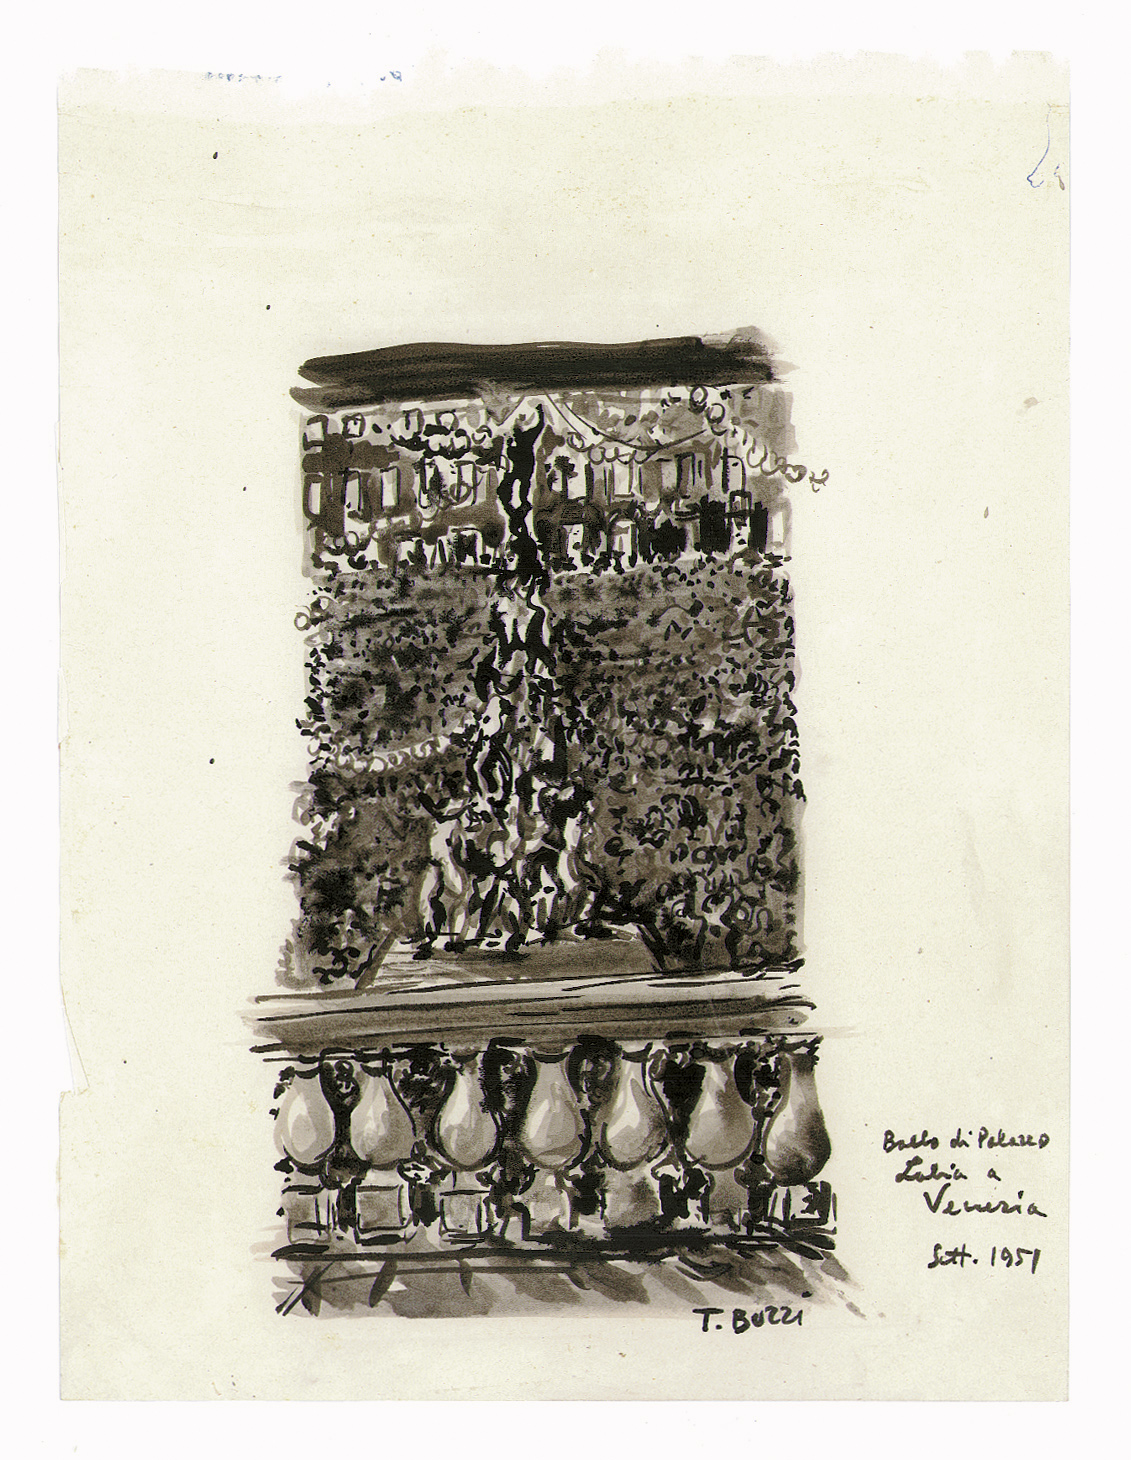 Ballo di Palazzo
Labia a
Venezia
Sett. 1951
T. BUZZI